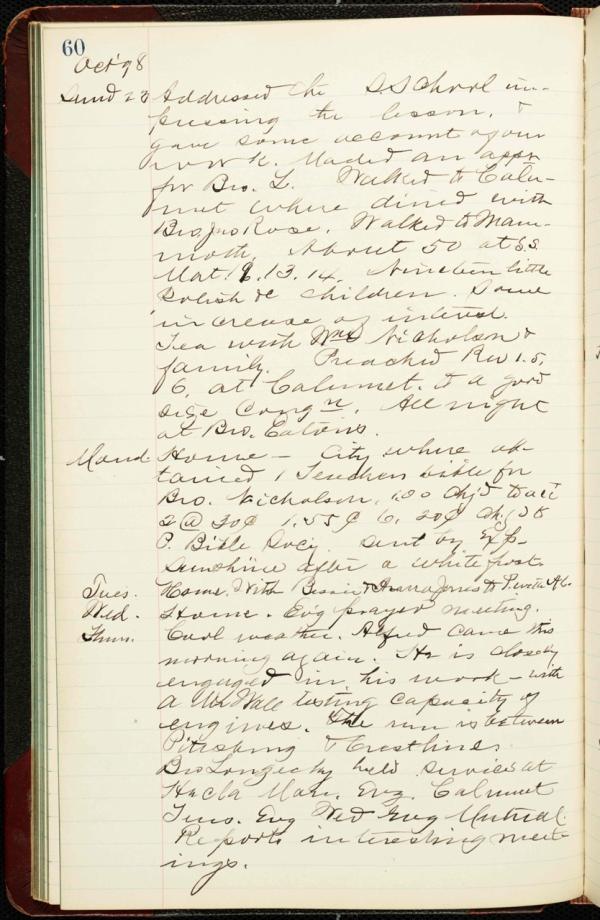 60
Oct '98
Sund 23 Addressed the S. School im-
pressing the lesson, &
gave some account of our
work. Maded an appn
for Bro. L. Walked to Calu-
met where dined with
Bro. Jno Rose. Walked to Mam-
moth. About 50 at S.S.
Mat. 18.13.14. Nineteen little
Polish &c children. Some
increase of interest.
Tea with Wm Nicholson &
family. Preached Rev 1.5,
6, at Calumet. to a good
size Congn. All night
at Bro. Eatons.
Mond. Home - City where ob-
tained 1 Teachers bible for
Bro. Nicholson, 1.00 Chj'd to acc
2 @ 20¢ 1.55¢ 6, 20¢
P. Bible Socy. sent by Exp.
Sunshine after a white frost.
Tues. Home. With Bessie &
Wed. Home. Ev'g prayer meeting.
Thurs. Cool weather. Alfred came this
morning again. He is closely
engaged in his work - with
a Mr Wall testing capacity of
engines. The run is between
Pittsburg & Crestline.
Bro Longecky held services at
Hecla Mon. Evg. Calumet
Tues. Evg Wed Evg Mutual.
Reports interesting meet-
ings.